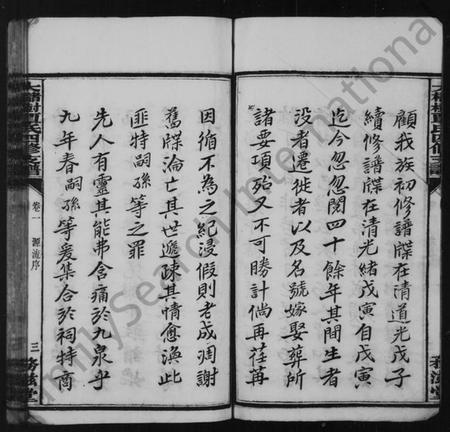 顧我族初修譜牒在清道光戊子
續修譜牒在清光緒戊寅自戊寅
迄今忽忽閱四十餘年其間生者
没者遷徙者以及名號嫁娶葬所
諸要項殆又不可勝計倘再荏苒
因循不為之紀寖假則老成凋謝
舊牒淪亡其世遞疎其情愈渙此
匪特嗣孫等之罪
先人有靈其能弗含痛於九泉乎
九年春嗣孫等爰集合於祠特商
氏四修支譜
卷一
源流序
三
FamilySearch International